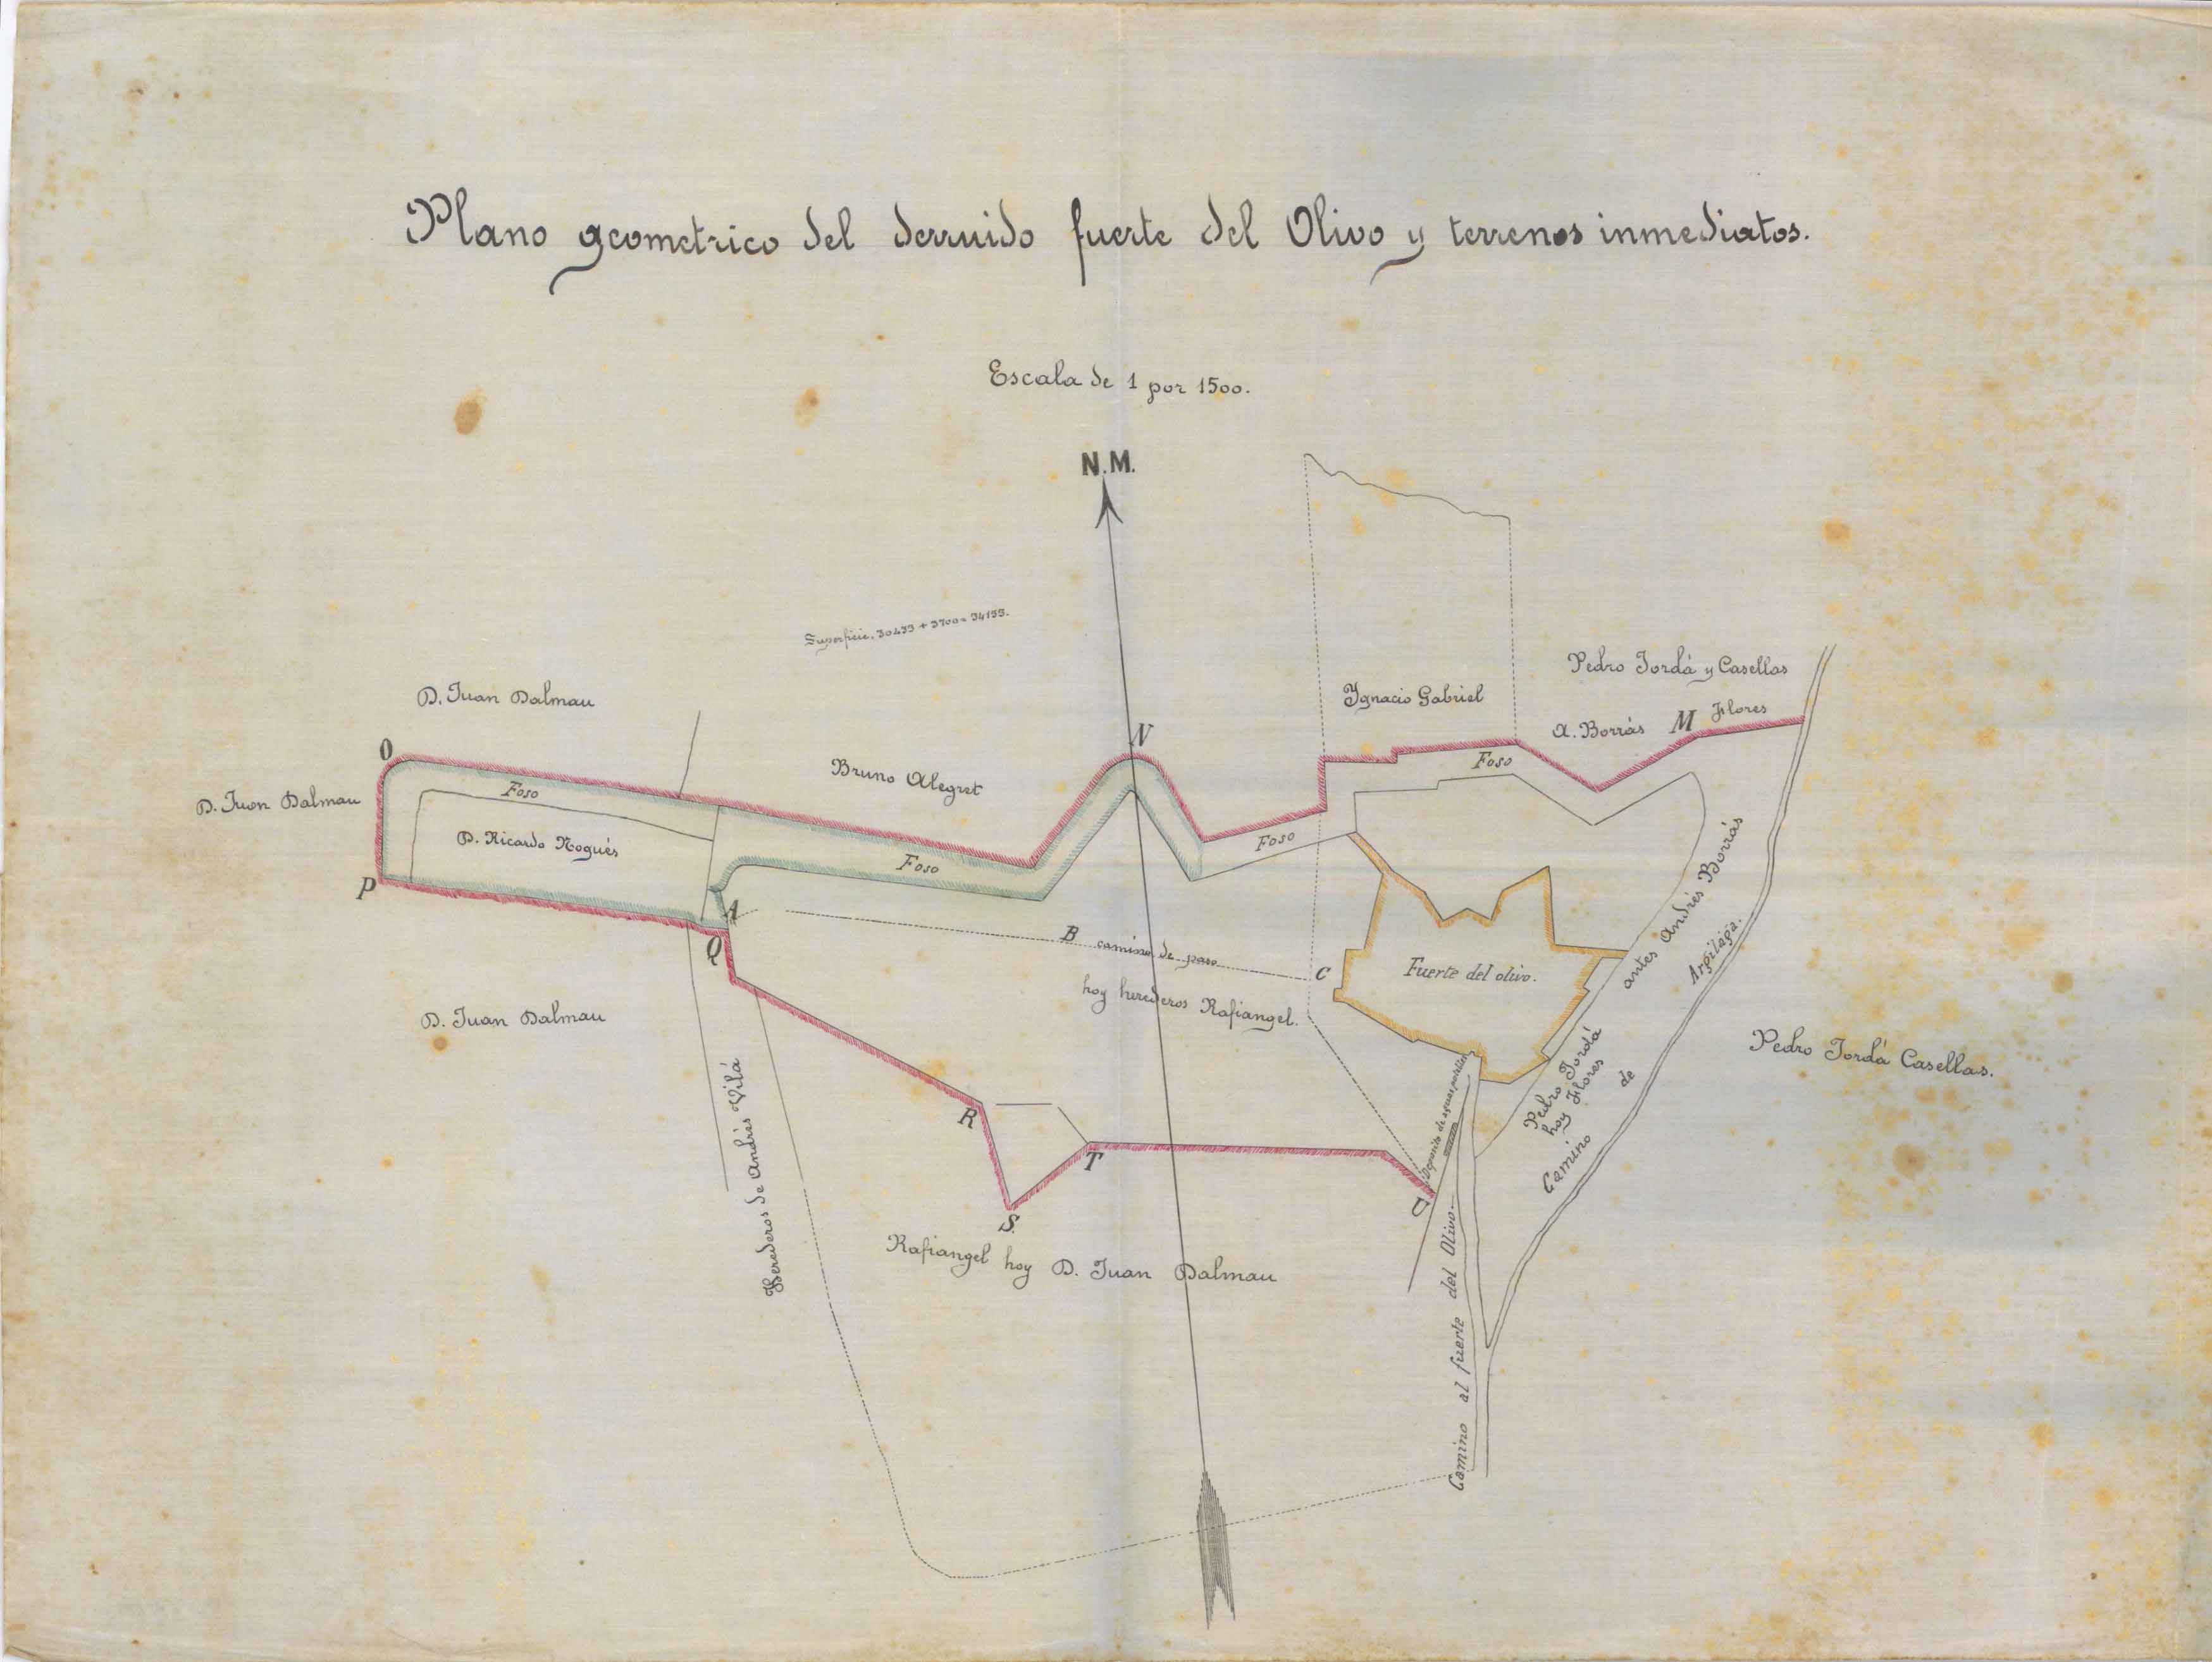 Plano geometrico del derruido fuerte del Olivo y terrenos inmediatos.
Escala de 1 por 1500.
N.M.
Superficie. 30433 + 3700 = 34133.
D. Juan Dalmau
Pedro Jordá y Casellas
Ygnacio Gabriel
A. Borrás
M
Flores
O
N
Bruno Alegret
Foso
D. Juan Dalmau
Foso
D. Ricardo Nogués
Foso
Foso
P
A
Q
B camino de paso
C
Fuerte del olivo.
antes Andrés Borrás
Camino de Argilaga.
hoy herederos Rafiangel.
D. Juan Dalmau
Pedro Jordá
hoy Flores
Pedro Jordá Casellas.
Herederos de Andrés Vilá
R
S.
T
U
Deposito de aguas
Rafiangel hoy D. Juan Dalmau
Camino al fuerte del Olivo